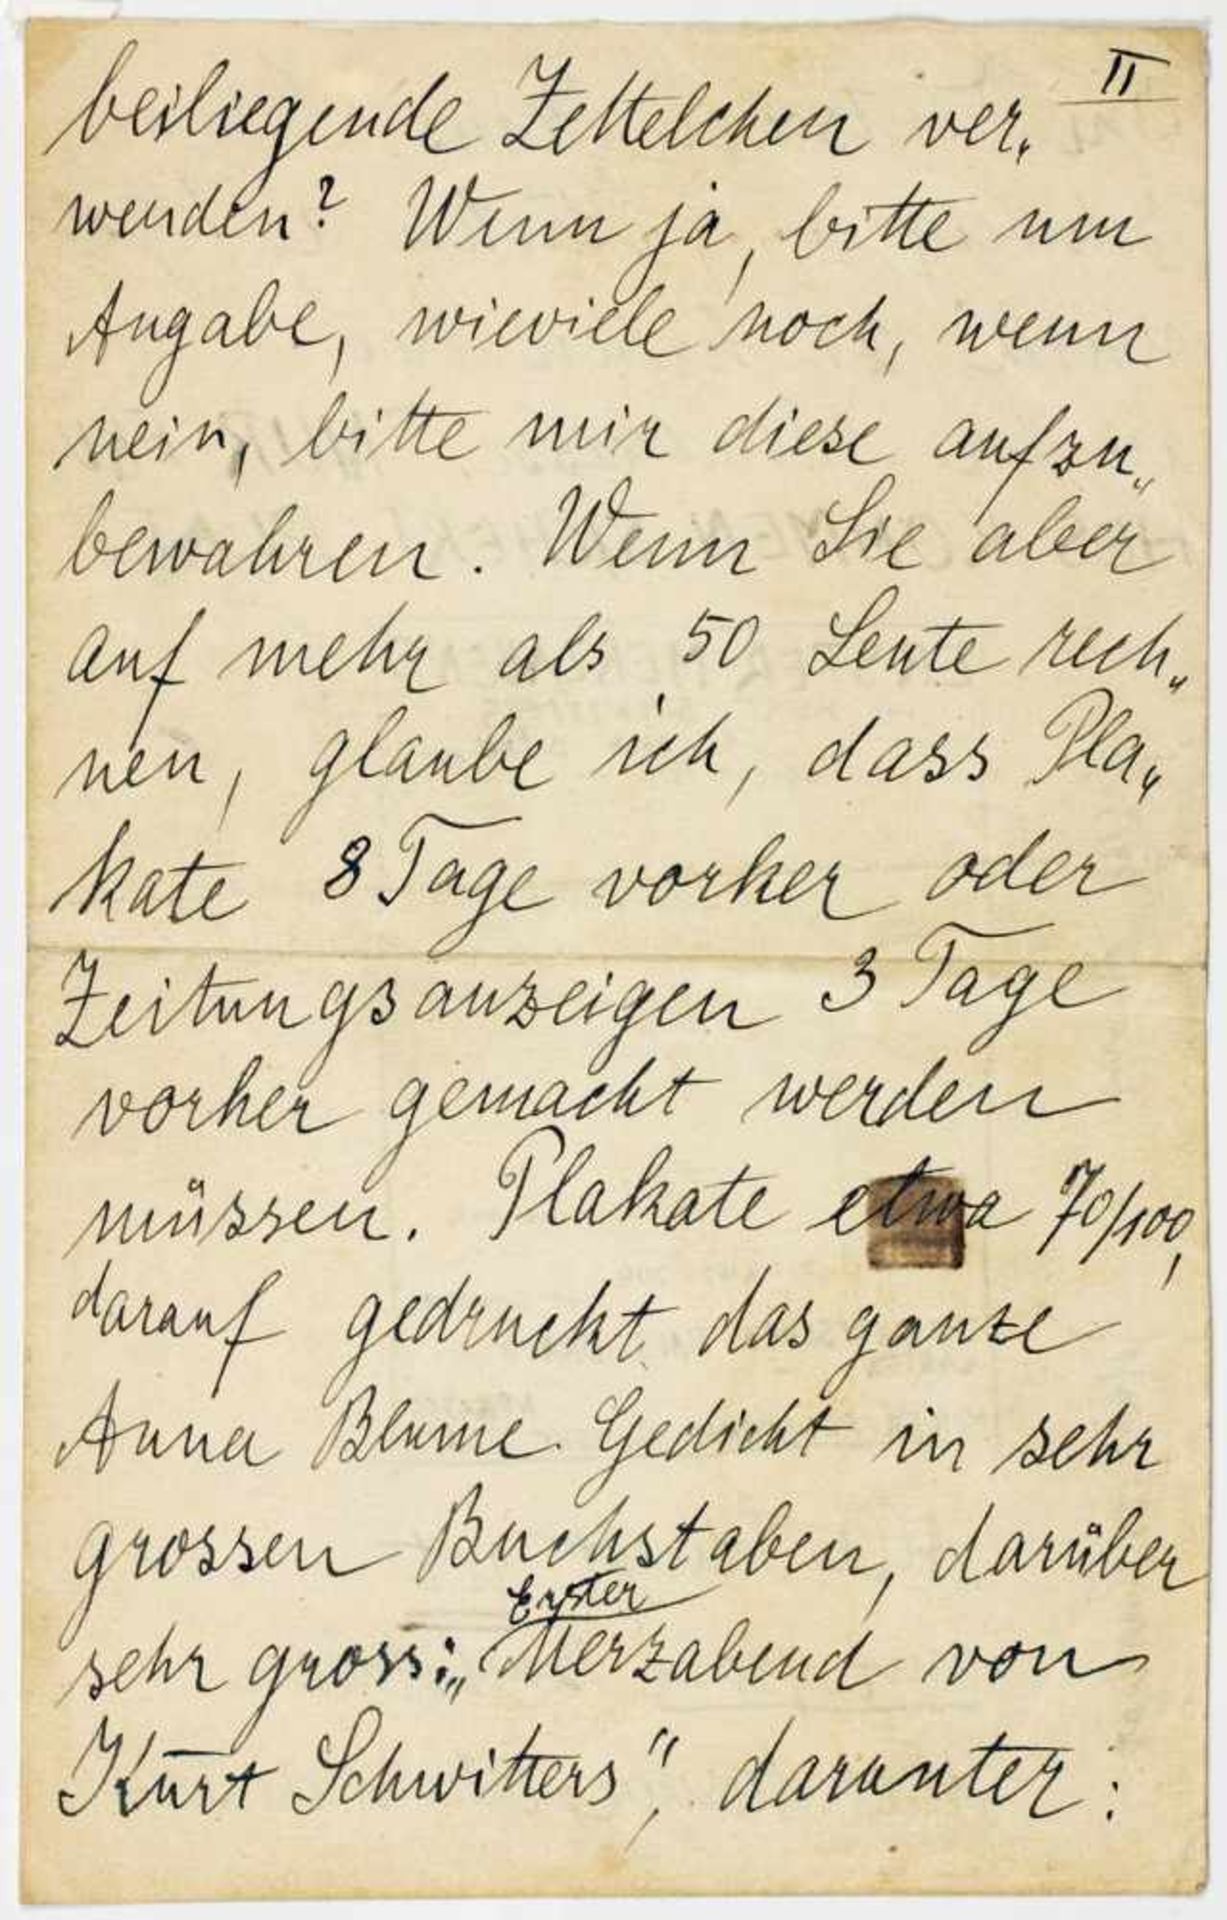 II
beiliegende Zettelchen ver„
wenden? Wenn ja, bitte um
Angabe, wieviele noch, wenn
nein, bitte mir diese aufzu„
bewahren. Wenn Sie aber
auf mehr als 50 Leute rech„
nen, glaube ich, dass Pla„
kate 8 Tage vorher oder
Zeitungsanzeigen 3 Tage
vorher gemacht werden
müssen. Plakate etwa 70/100,
darauf gedruckt das ganze
Anna Blume Gedicht in sehr
grossen Buchstaben, darüber
Erster
sehr gross: „Merzabend von
Kurt Schwitters“, darunter: